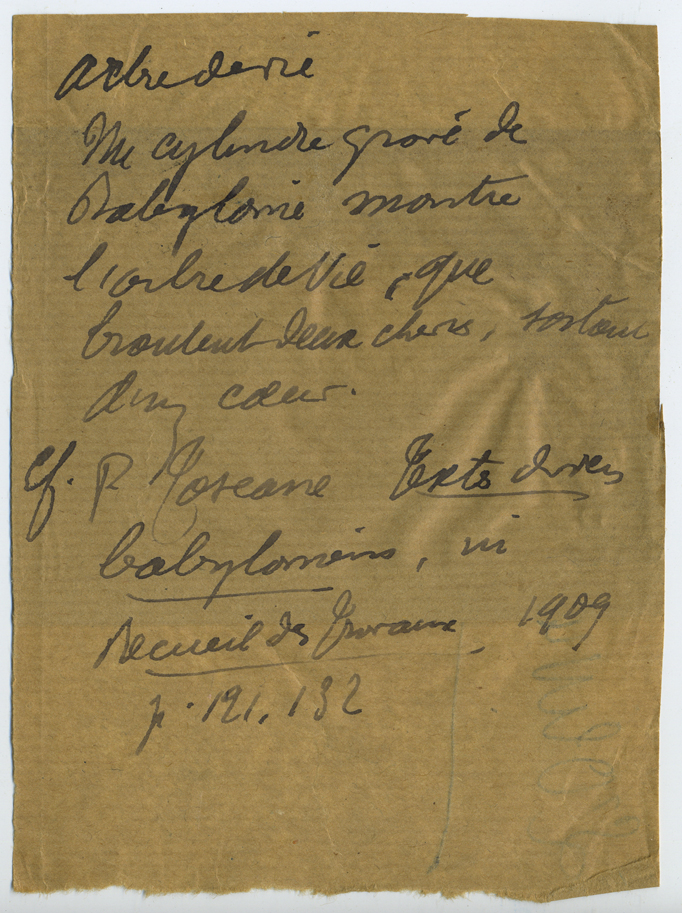 Arbre de vie
Un cylindre gravé de
Babylonie montre
l'arbre de Vie, que
broutent deux chevs, sortant
d'un cœur.
cf. P. Toscane Textes divers
babyloniens, in
Recueil des Travaux, 1909
p. 121, 132